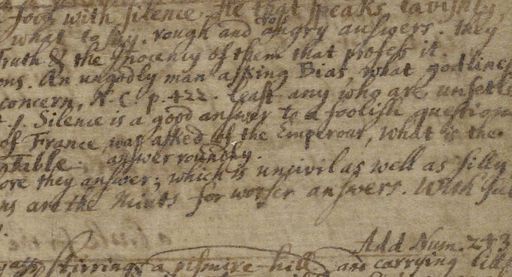 fool with silence. He that speaks lavishly,
what to say rough and angry answers. they
Truth & the Inocency of them that profess it.
ons. An ungodly man asking Bias, what godliness
concern, N. C. p. 422. least any who are unsetle
Silence is a good answer to a foolish question
of France was asked of the Emperour, What is the
answer roundly.
ore they answer; which is uncivil as well as silly
ns are the Mints for worser answers. With
Add Num. 243
stirring a pismire-hill and carrying